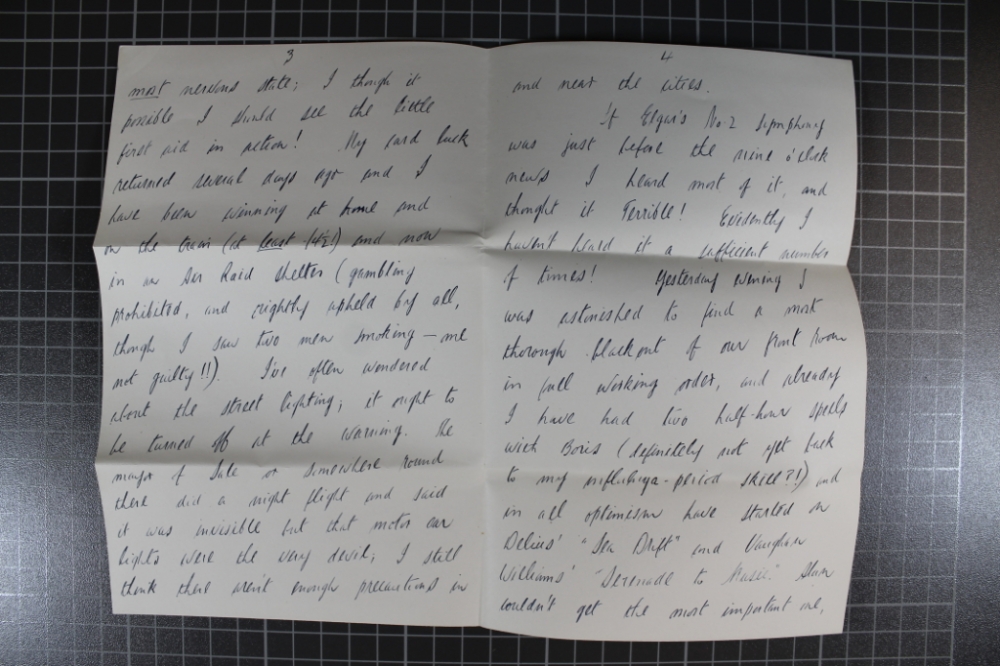 3
most nervous state; I though it
possible I should see the little
first aid in action! My card luck
returned several days ago and I
have been winning at home and
on the train (at least 1/4½!) and now
in an Air Raid shelter (gambling
prohibited, and rightly upheld by all,
though I saw two men smoking – me
not guilty!!). I've often wondered
about the street lighting; it ought to
be turned off at the warning. The
mayor of Sale or somewhere round
there did a night flight and said
it was invisible but that motor car
lights were the very devil; I still
think there aren't enough precautions in
4
and near the cities.
If Elgar's No. 2 symphony
was just before the nine o'clock
news I heard most of it, and
thought it Terrible! Evidently I
haven't heard it a sufficient number
of times! Yesterday evening I
was astonished to find a most
thorough blackout of our front room
in full working order, and already
I have had two half-hour spells
with Boris (definitely not yet back
to my influenza-period skill?!) and
in all optimism have started on
Delius' "Sea Drift" and Vaughan
Williams' "Serenade to Music."
couldn't get the most important one,